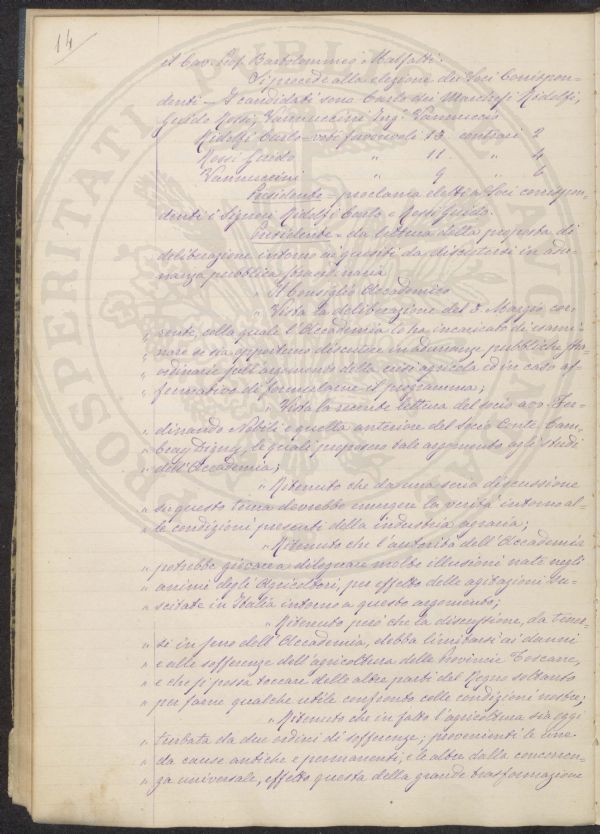 14
il Cav. Prof. Bartolommeo Malfatti.
Si procede alla elezione dei Soci Corrispon-
denti — I candidati sono Carlo dei Marchesi Ridolfi,
Guido Rossi, Vannuccini Ing.e Vannuccio
Ridolfi Carlo – voti favorevoli 13 contrari 2
Rossi Guido " 11 " 4
Vannuccini " 9 " 6
Presidente – proclama eletti a Soci corrispon-
denti i Signori Ridolfi Carlo e Rossi Guido.
Presidente – da lettura della proposta di
deliberazione intorno ai quesiti da discutersi in adu-
nanza pubblica straordinaria
" Il Consiglio Accademico
" Vista la deliberazione del 3. Marzo cor-
" rente, colla quale l'Accademia lo ha incaricato di esami
" nare se sia opportuno discutere in adunanze pubbliche stra-
" ordinarie sull'argomento della crisi agricola ed in caso af-
" fermativo di formularne il programma;
" Vista la recente lettura del socio avv. Fer-
" dinando Nobili e quella anteriore del Socio Conte Cam-
" bray Digny, le quali proposero tale argomento agli studi
" dell'Accademia;
" Ritenuto che da una seria discussione
" su questo tema dovrebbe emergere la verità intorno al-
" le condizioni presenti della industria agraria;
" Ritenuto che l'autorità dell'Accademia
" potrebbe giovare a dileguare molte illusioni nate negli
" animi degli Agricoltori, per effetto delle agitazioni su-
" scitate in Italia intorno a questo argomento;
" Ritenuto però che la discussione, da tener-
" si in seno dell'Accademia, debba limitarsi ai danni
" e alle sofferenze dell'agricoltura delle Provincie Toscane,
" e che si possa toccare delle altre parti del Regno soltanto
" per farne qualche utile confronto colle condizioni nostre;
" Ritenuto che in fatto l'agricoltura sia oggi
" turbata da due ordini di sofferenze; provenienti le une
" da cause antiche e permanenti; e le altre dalla concorren-
" za universale, effetto questa della grande trasformazione
PROSPERITATI PUBLICAE